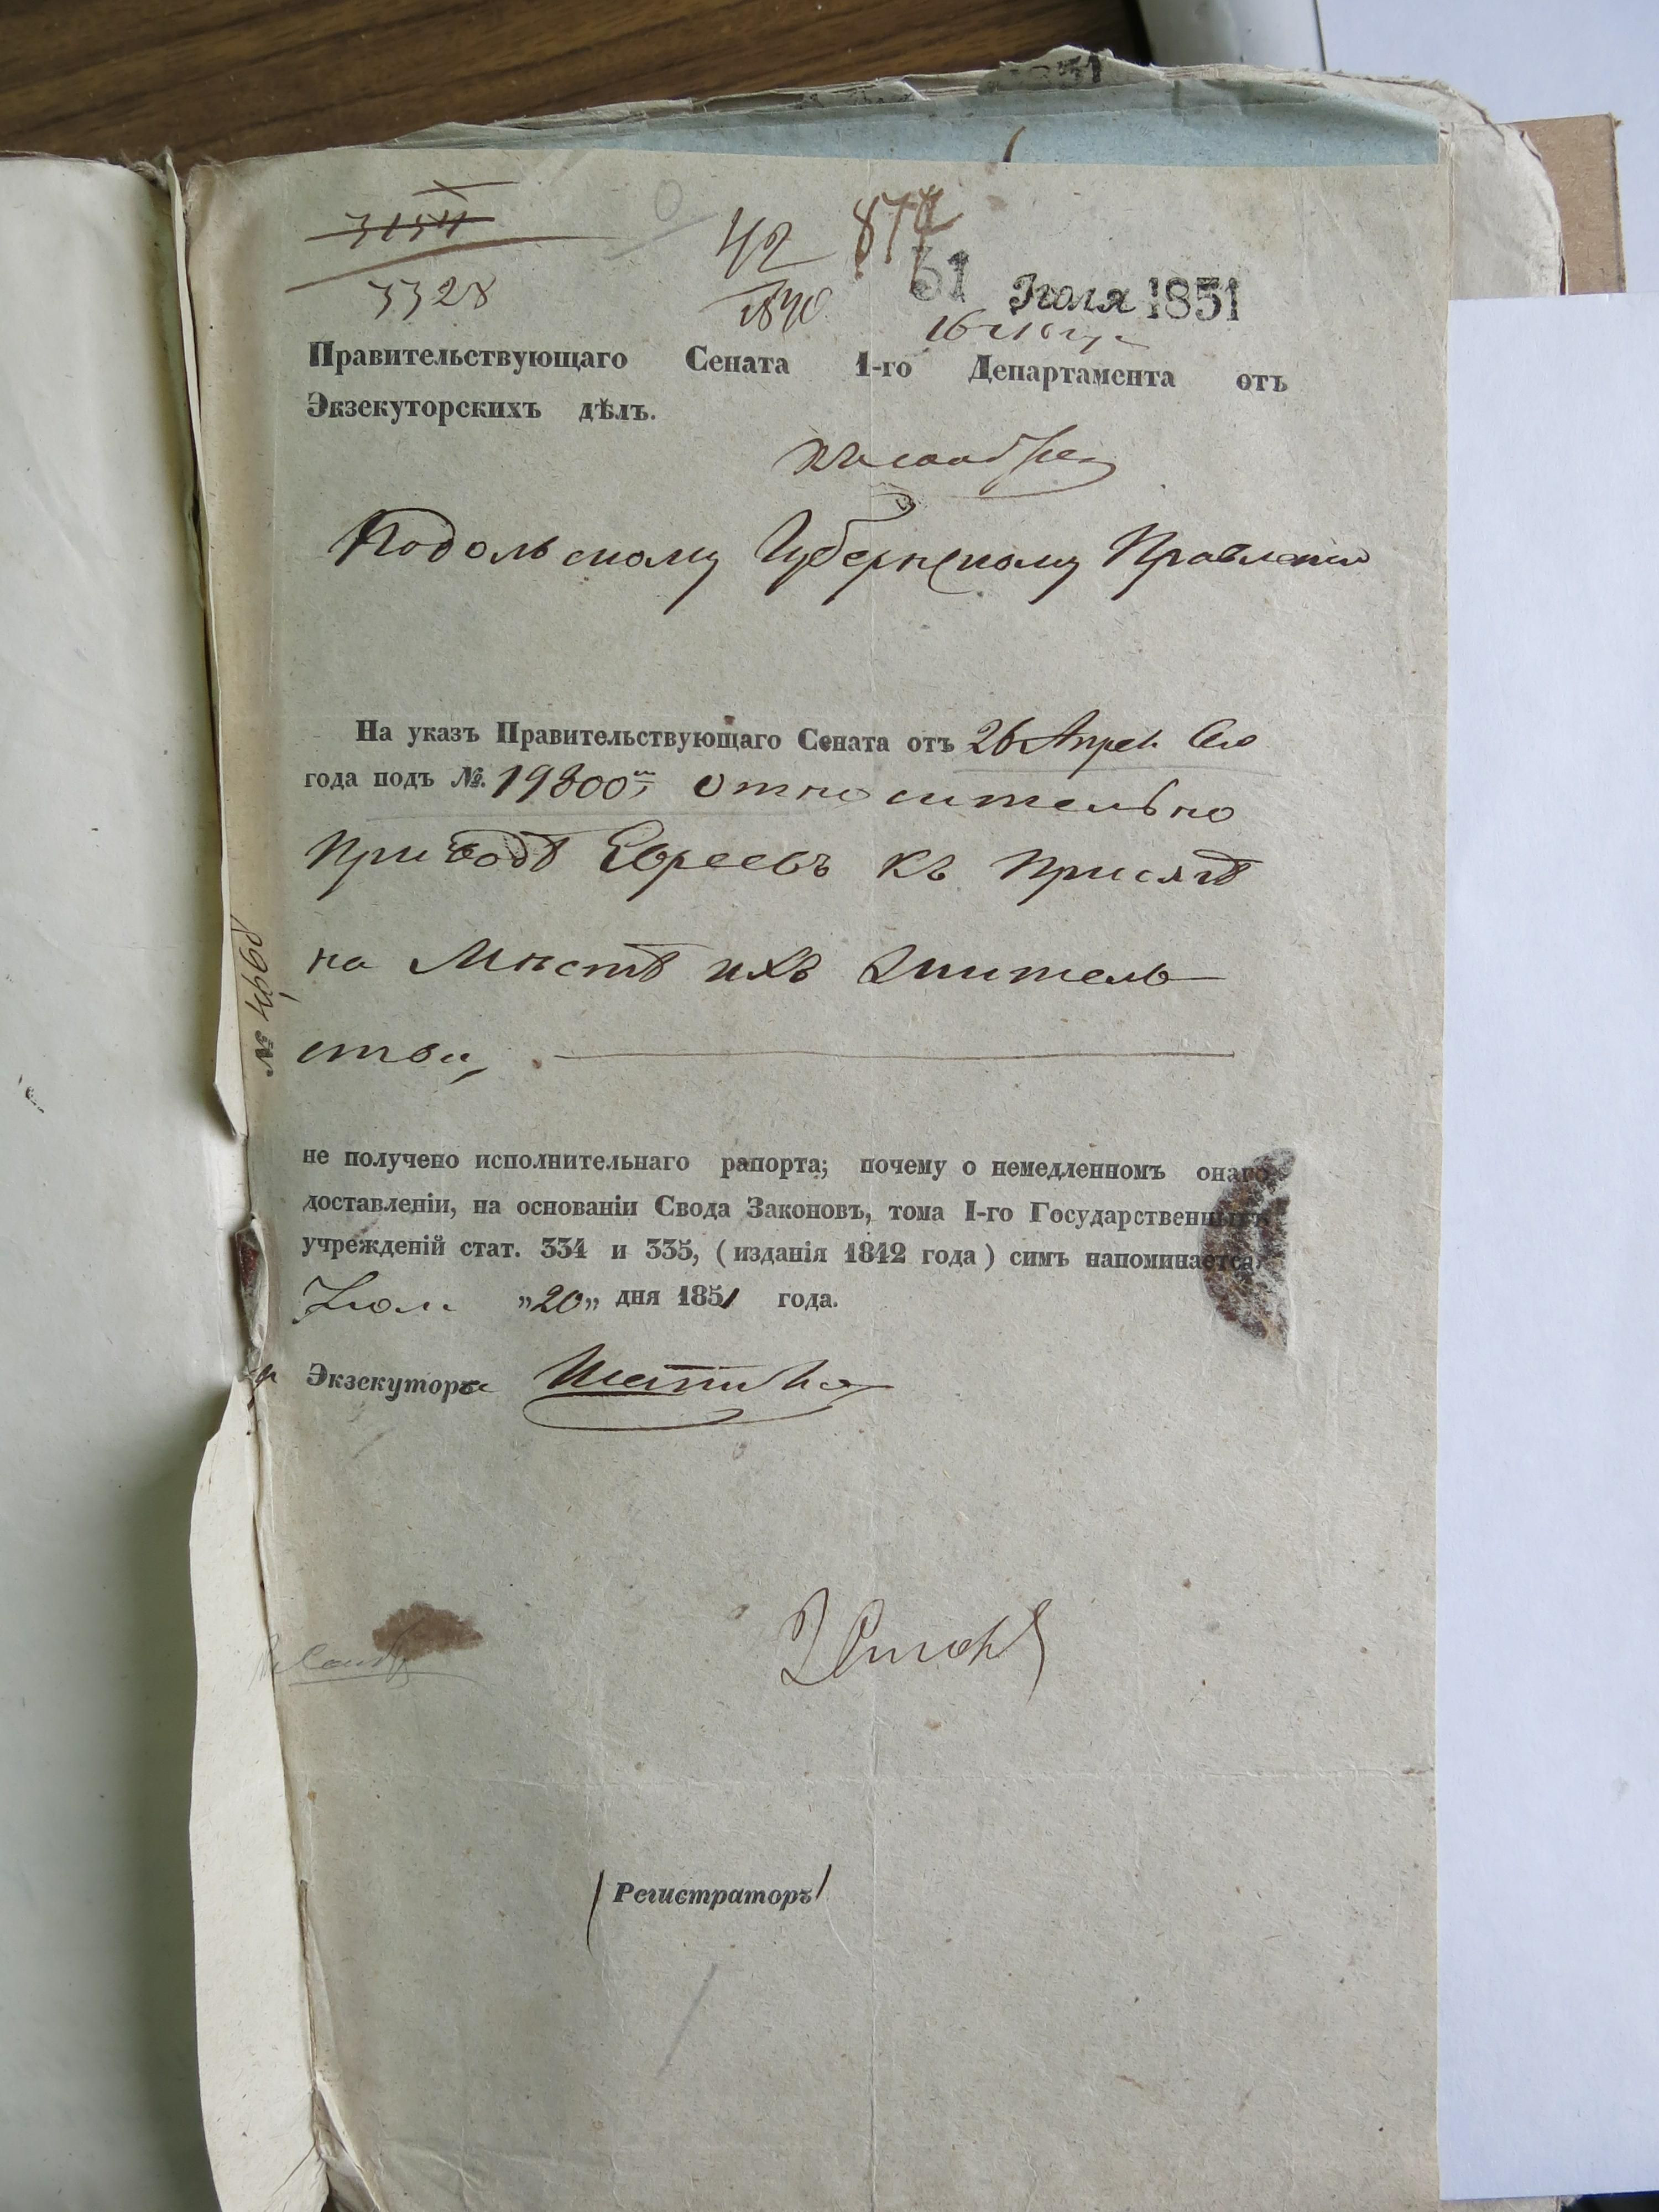 1851
3154
3328
42
1840
877
31 Іюля 1851
Правительствующаго Сената 1-го Департамента отъ
Экзекуторскихъ дѣлъ.
Подольскому Губернскому Правленію
На указъ Правительствующаго Сената отъ 26 Апрел. Сего
года подъ №. 19300м, относительно
приводѣ Евреевъ къ присягѣ
на Мѣстѣ ихъ Житель
ства,
№ 4668
не получено исполнительнаго рапорта; почему о немедленномъ онаго
доставленіи, на основаніи Свода Законовъ, тома I-го Государственныхъ
учрежденій стат. 334 и 335, (изданія 1842 года) симъ напоминается
Іюля „20„ дня 1851 года.
Экзекутора
(Регистраторъ)